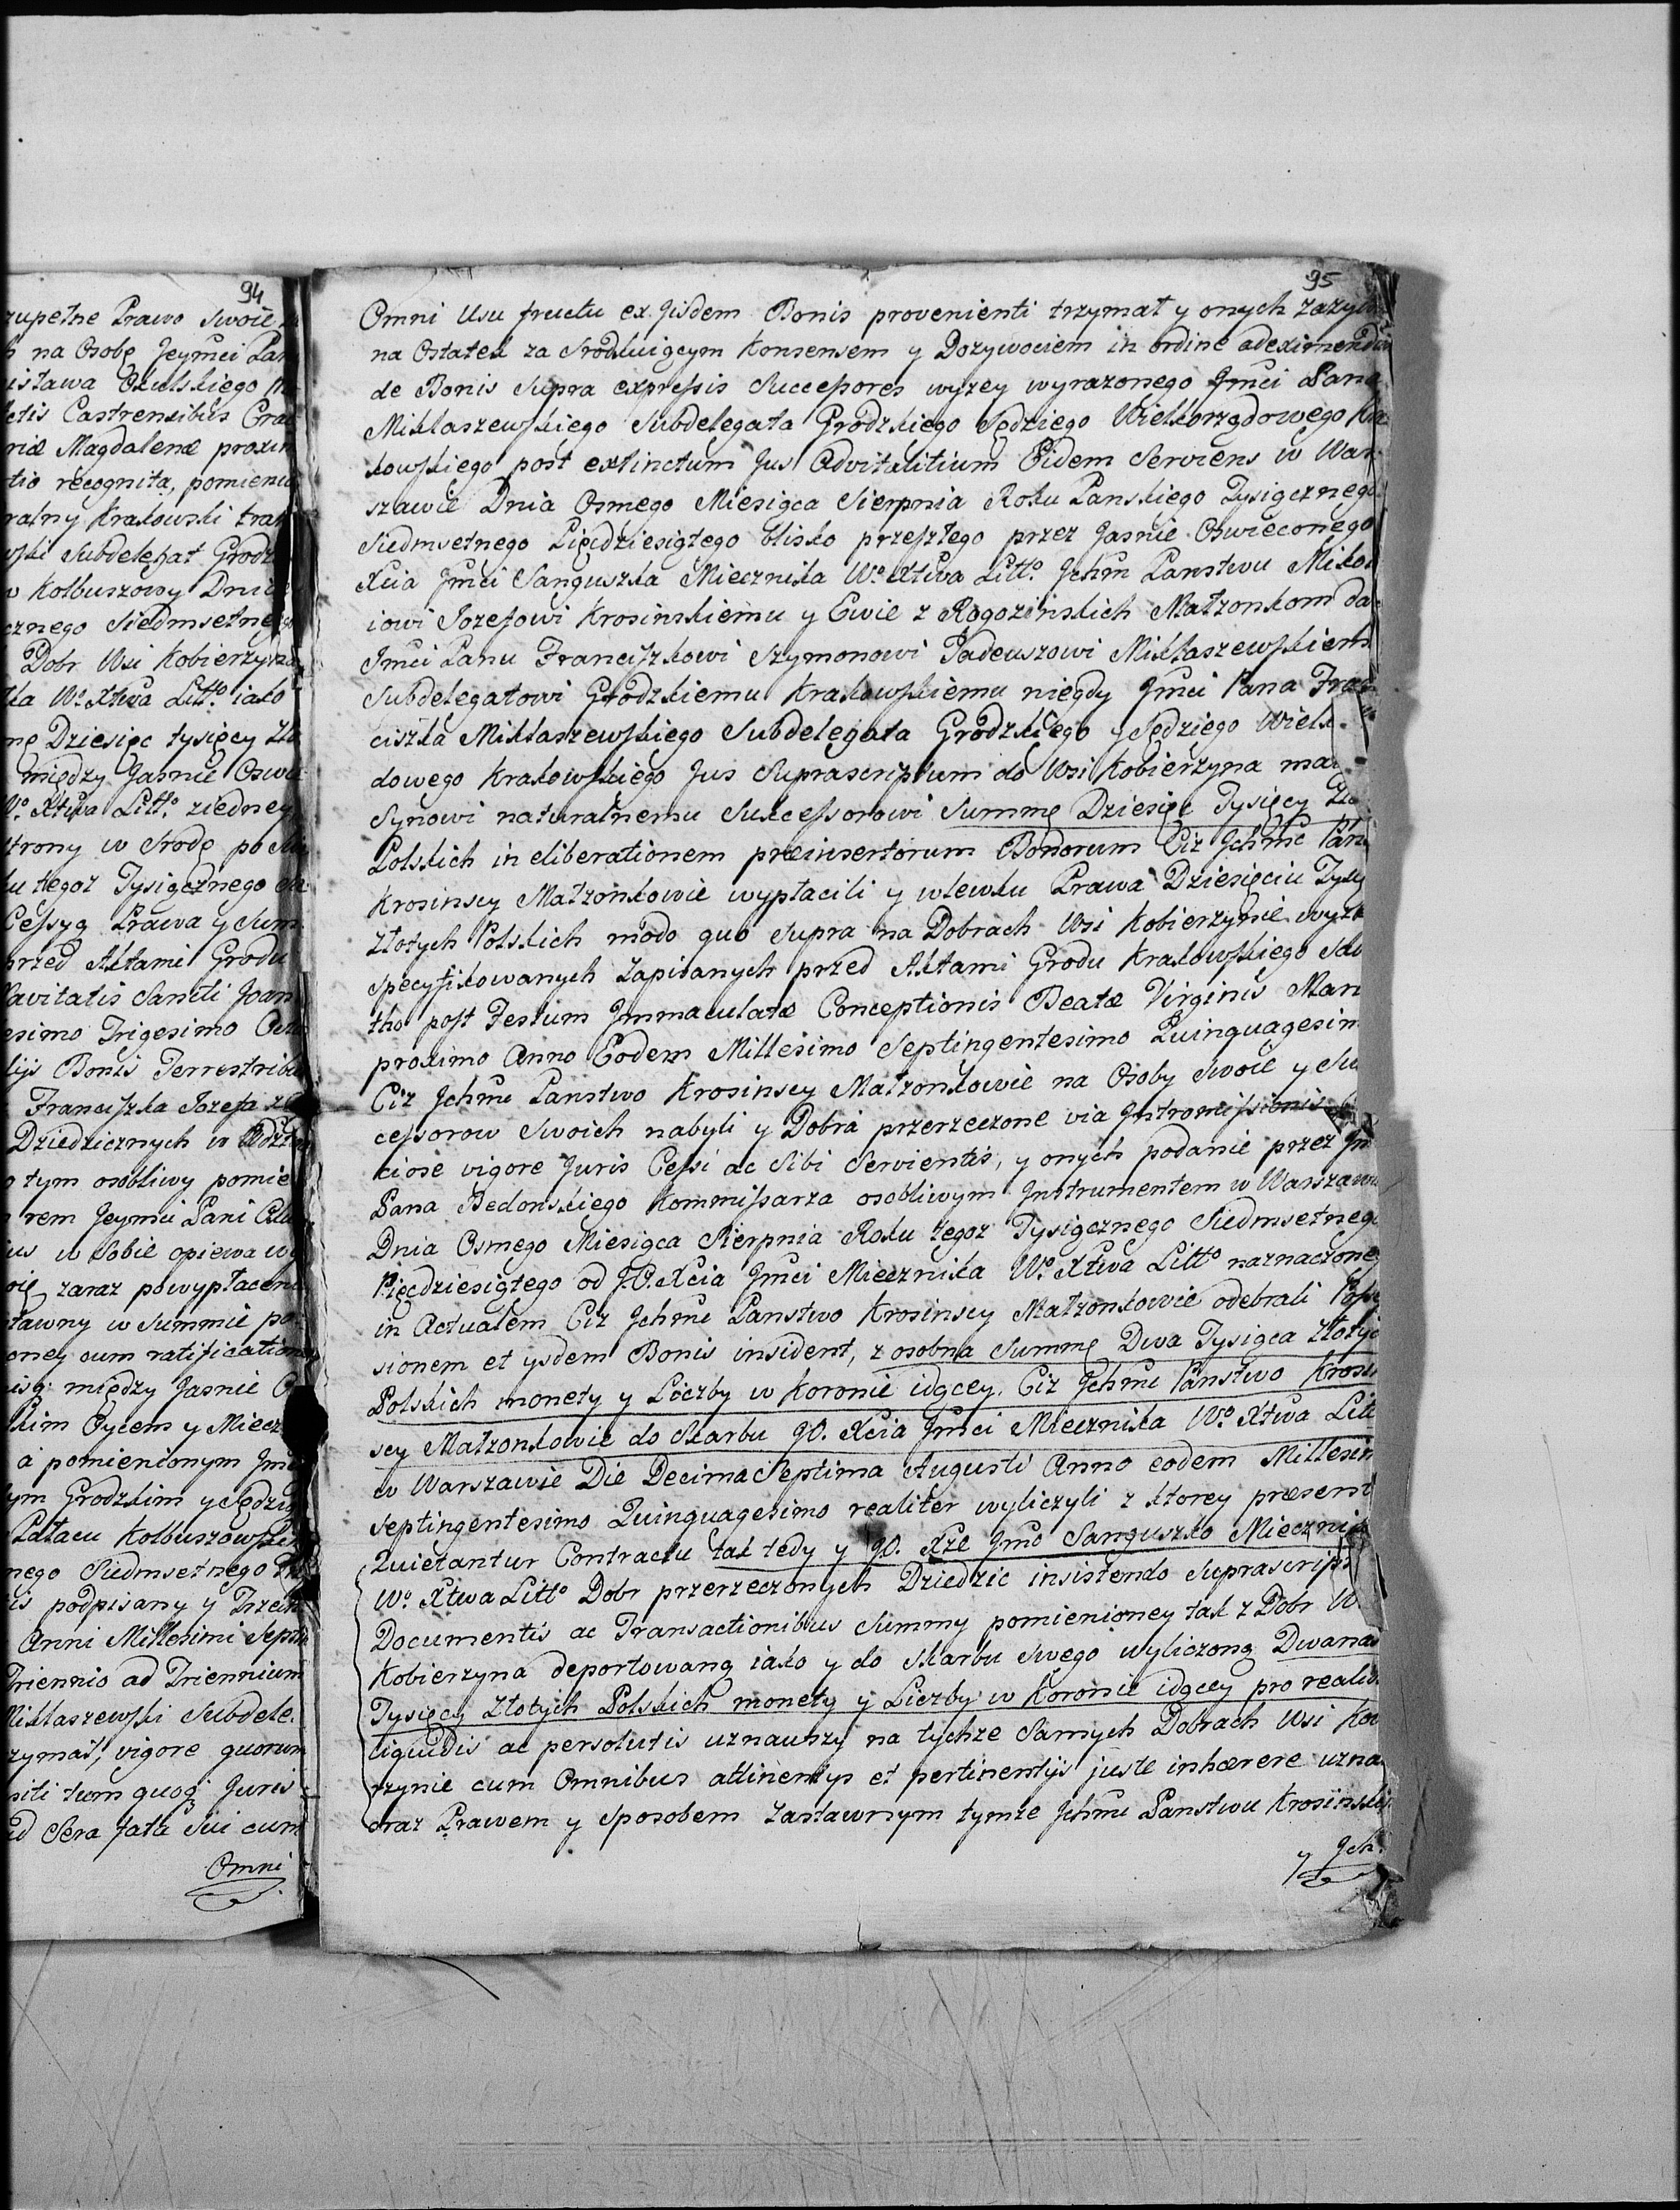 94
zupełne Prawo Swoie
na Osobę Jeymci Pan
isława Ożulskiego
ctis Castrensibus Crac
riæ Magdalenæ proxim
tio recognita, pomieni
ralny Krakowski
wski Subdelegat Grodz
w Kolbuszowy Dnia
cznego Siedmsetnego
Dobr Wsi Kobierzyna
ka Wo. Xtwa Litto. iako
mę Dziesięc tysięcy Zło
między Jasnie Oswie
Wo. Xtwa Litto. ziedney
strony w Srodę po
ku tegoz Tysiącznego
Cessyą Prawa y Sum
przed Aktami Grodu
Navitatis Sancti Joan
esimo Trigesimo
lijs Bonis Terrestribus
Franciszka Jozefa
Dziedzicznych w
o tym osobliwy pomie
rem Jeymci Pani
ius w Sobie opiewa
oię zaraz powypłacen
tawny w Summie po
oney cum ratificatione
isą między Jasnie
skim Oycem y Miecz
a pomienionym Jmci
ym Grodzkim y Sędzią
Pałacu Kolbuszowskim
nego Siedmsetnego
is podpisany y Trzech
Anni Millesimi Septin
Triennio ad Triennium
Miklaszewski Subdele.
zymał, vigore quorum
siti tum quoq Juris
ad Sera fata Sui cum
Omni
95
Omni Usu fructu ex Jisdem Bonis provenienti trzymał y onych zazyw
na Ostatek za Srodkuiącym Konsensem y Dozywociem in ordine ad eximend
de Bonis Supra expressis Successores wyzey wyrazonego Jmci Pana
Miklaszewskiego Subdelegata Grodzkiego Sędziego Wielkorządowego Kra
kowskiego post extinctum Jus Advitalitium Eidem Serviens w War
szawie Dnia Osmego Miesiąca Sierpnia Roku Panskiego Tysiącznego
Siedmsetnego Pięćdziesiątego blisko przeszłego przez Jasnie Oswieconego
Xcia Jmci Sanguszka Miecznika Wo. Xtwa Litto. Jchm Panstwu Mikoł
iowi Jozefowi Krosinskiemu y Ewie z Rogozińskich Małzonkom da
Jmci Panu Franciszkowi Szymonowi Tadeuszowi Miklaszewskiem
Subdelegatowi Grodzkiemu Krakowskiemu niegdy Jmci Pana Fran
ciszka Miklaszewskiego Subdelegata Grodzkiego y Sędziego Wielk
dowego Krakowskiego Jus Suprascriptum do Wsi Kobierzyna ma
Synowi naturalnemu Sukcessorowi Summę Dziesięc Tysięcy Zło
Polskich in eliberationem præinsertorum Bonorum Ciz Jchmc Pan
Krosinscy Małzonkowie wypłacili y wlewku Prawa Dziesięciu Tysię
Złotych Polskich modo quo Supra na Dobrach Wsi Kobierzynie wyze
specyfikowanych zapisanych przed Aktami Grodu Krakowskiego Sab
tho post Festum Jmmaculatæ Conceptionis Beatæ Virginis Mari
proximo Anno Eodem Millesimo Septingentesimo Quinquagesim
Ciz Jchmc Panstwo Krosinscy Małzonkowie na Osoby Swoie y Suk
cessorow Swoich nabyli y Dobra przerzeczone via Jntromissionis
ciose vigore Juris Cessi ac Sibi Servientis, y onych podanie przez Jm
Pana Bedonskiego Kommissarza osobliwym Jnstrumentem w Warszawie
Dnia Osmego Miesiąca Sierpnia Roku tegoz Tysiącznego Siedmsetnego
Pięcdziesiątego od J.O. Xcia Jmci Miecznika Wo. Xtwa Litto naznaczone
in Actualem Ciz Jchmc Panstwo Krosinscy Małzonkowie odebrali Posse
sionem et ysdem Bonis insident, z osobna Summę Dwa Tysiąca Złotych
Polskich monety y Liczby w Koronie idącey. Ciz Jchmc Panstwo Krosin
scy Małzonkowie do Skarbu JO. Xcia Jmci Miecznika Wo. Xtwa Litt
w Warszawie Die Decima Septima Augusti Anno eodem Millesim
Septingentesimo Quinquagesimo realiter wyliczyli z ktorey præsent
Quietantur Contractu tak tedy y JO. Xże Jmc Sanguszko Miecznik
Wo. Xtwa Litto Dobr przerzeczonych Dziedzic insistendo Suprascript
Documentis ac Transactionibus Summy pomienioney tak z Dobr W
Kobierzyna deportowaną iako y do Skarbu Swego wyliczoną Dwanas
Tysięcy Złotych Polskich monety y Liczby w Koronie idącey pro realib
liquidis ac persolutis uznawszy na tychze Samych Dobrach Wsi Kob
rzynie cum Omnibus attinentys et pertinentijs juste inhærere uzna
oraz Prawem y sposobem Zastawnym tymze Jchmc Panstwu Krosinski
y Jch.